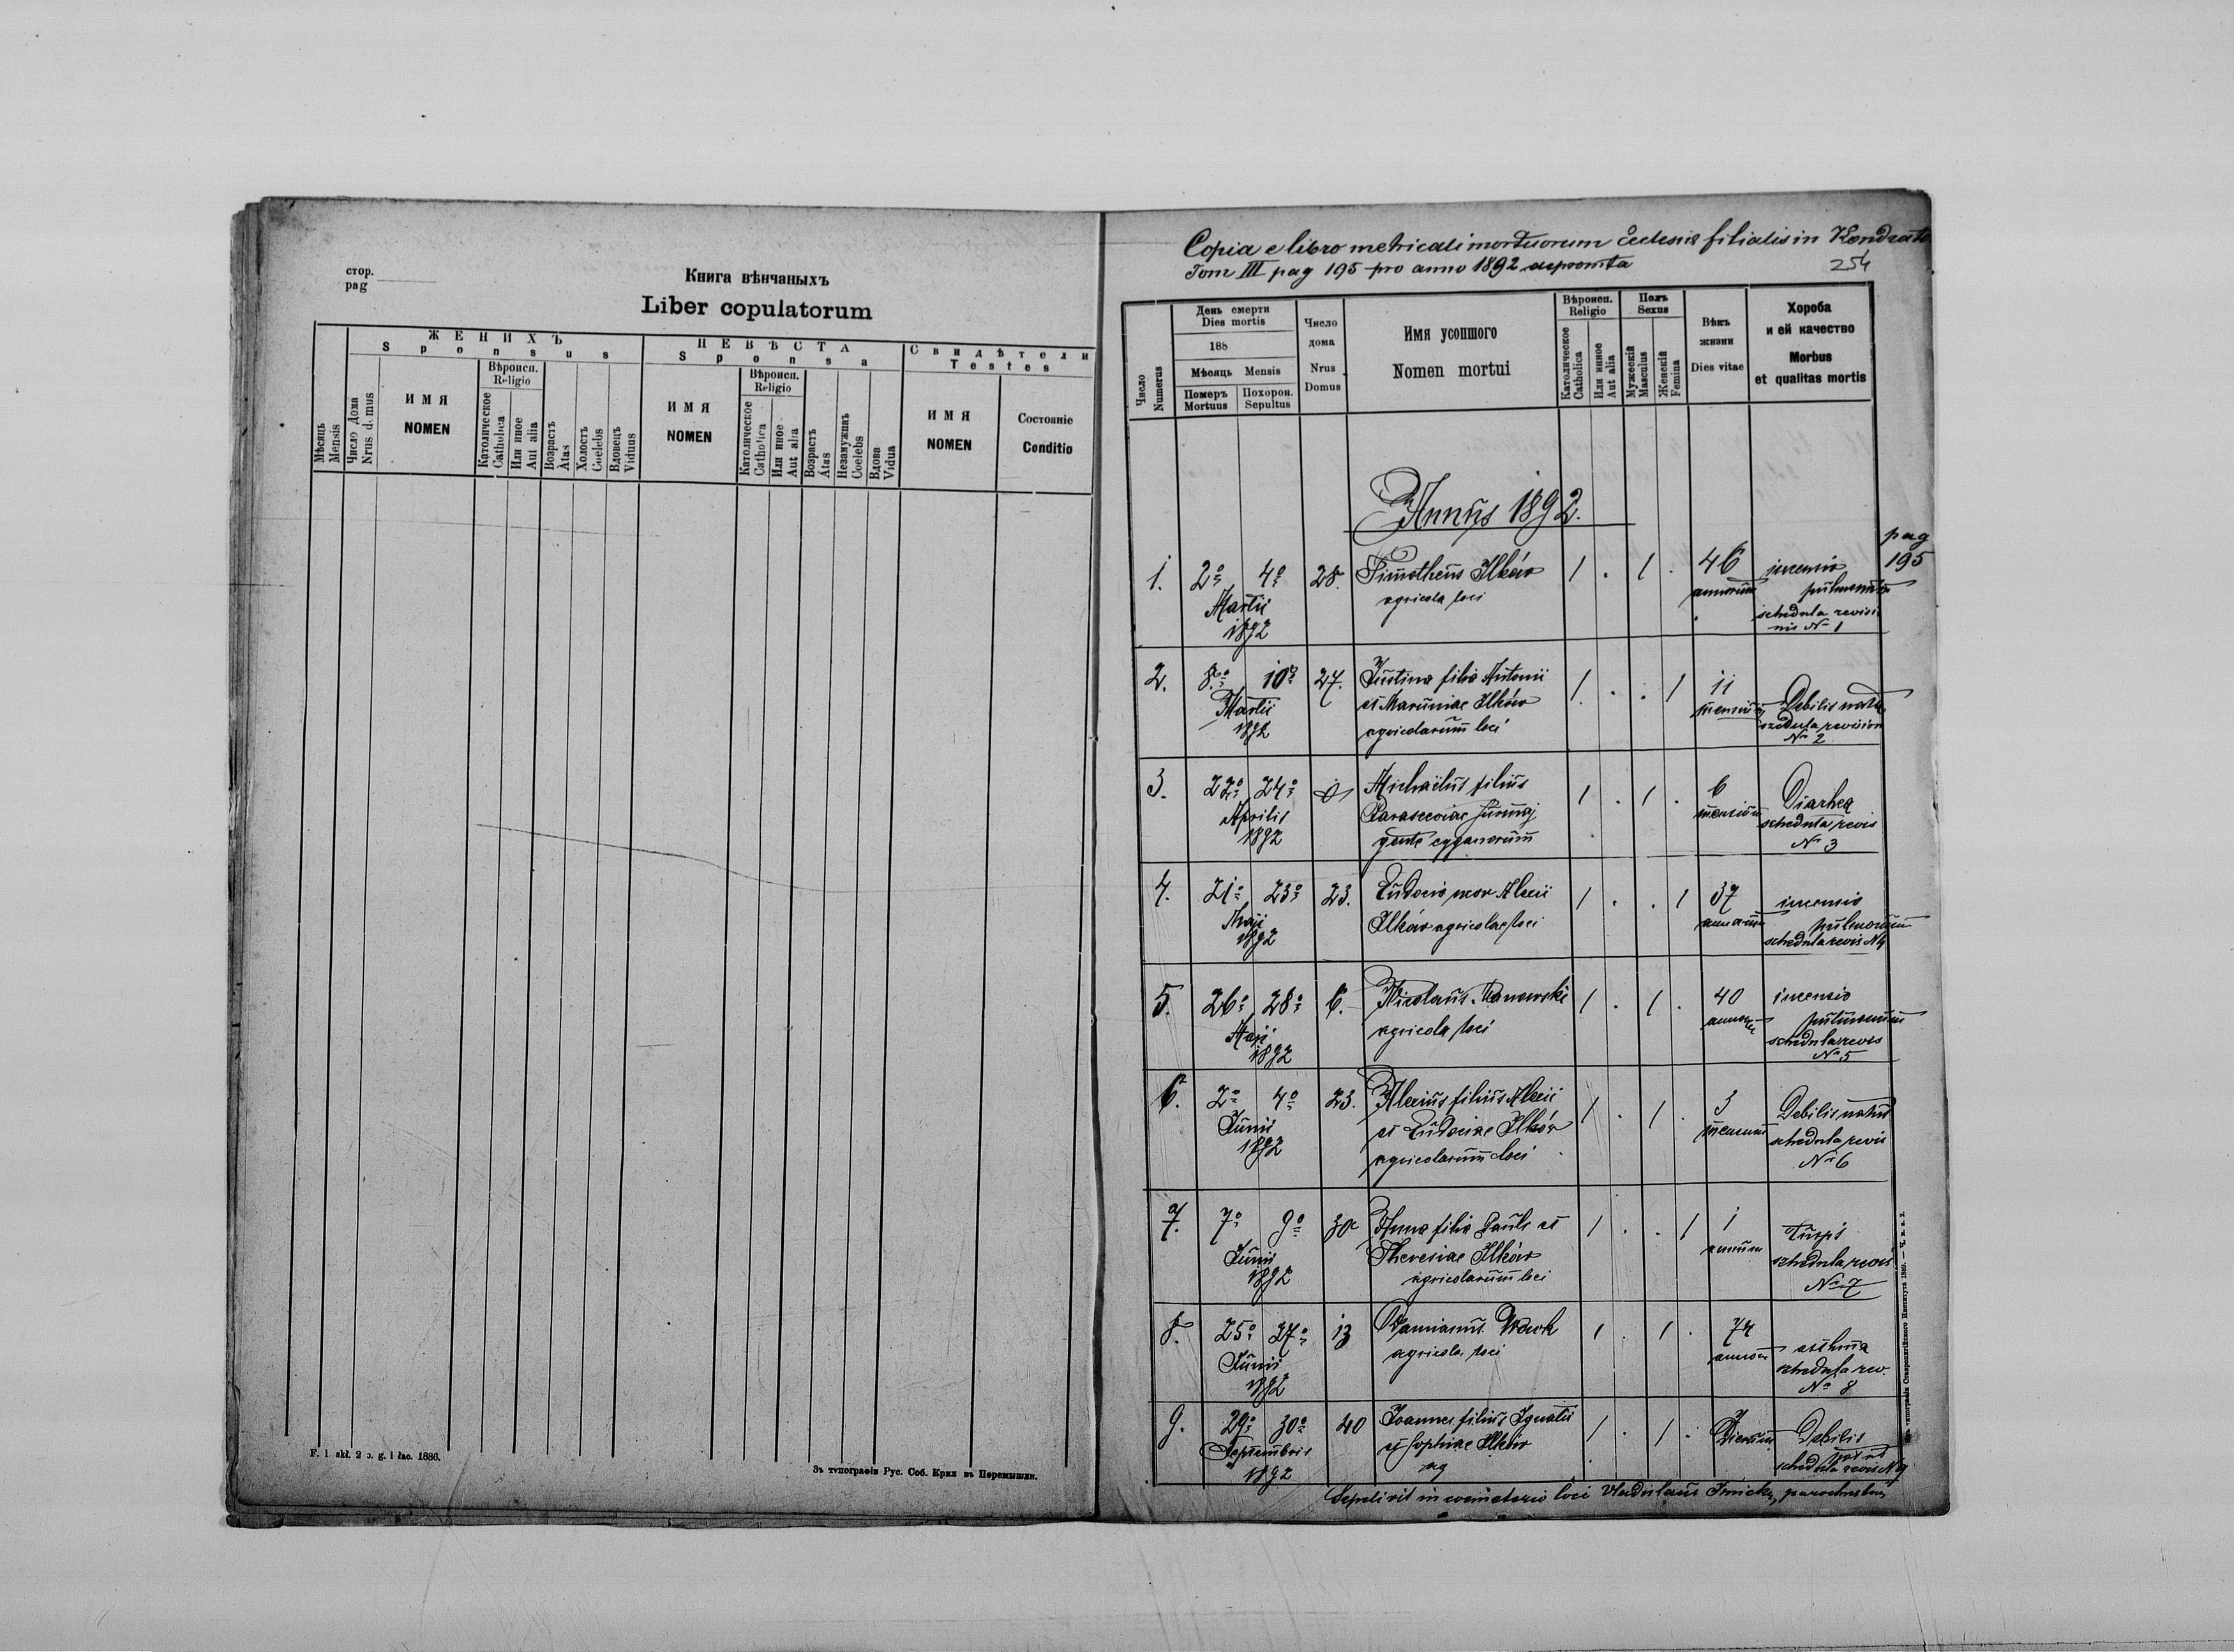 стор.
pag
Книга вѣнчаныхъ
Liber copulatorum
ЖЕНИХЪ
Sponsus
НЕВѢСТА
Sponsa
Свидѣтели
Testes
Мѣсяць
Mensis
Число Дома
Nrus domus
ИМЯ
NOMEN
Вѣроисп.
Religio
Католическое
Catholica
Или иное
Aut alia
Возрастъ
Átas
Холостъ
Coelebs
Вдовецъ
Viduus
ИМЯ
NOMEN
Вѣроисп.
Religio
Католическое
Catholica
Или иное
Aut alia
Возрастъ
Átas
Незамужнаъ
Coelebs
Вдова
Vidua
ИМЯ
NOMEN
Состояніе
Conditio
F. l. akl. 2 p. g. l łac. 1886.
Зъ типографіи Рус. Соб. Крил въ Перемышли.
Copia e libro metricali mortuorum Ecclesiæ filialis in Kondrato
Tom III pag 195 pro anno 1892 depromta
254
Число
Numerus
День смерти
Dies mortis
188
Мѣсяць Mensis
Померъ
Mortuus
Похорон.
Sepultus
Число
дома
Nrus
Domus
Имя усопшого
Nomen mortui
Вѣроисп.
Religio
Католическое
Catholica
Или инное
Aut alia
Полъ
Sexus
Мужескій
Masculus
Женскій
Femina
Вѣкъ
жизни
Dies vitae
Хороба
и ей качество
Morbus
et qualitas mortis
Annus 1892.
pag
195
1. 2º 4º 28. Timotheus Ilków 1 . 1 . 46 incensio
Martii agricola loci annorum pulmonum
1892 schedula revisio
nis Nº 1
2. 8º 10º 27. Justina filia Antonii 1 . . 1 11
Martii et Maruniae Ilków mensium Debilis nata
1892 agricolarum loci scedula revision
Nº 2
3. 22º 24º Michaëlus filius 1 . 1 . 6 Diarhea
Aprilis Parasceviae mensium schedula revis
1892 gente cyganorum Nº 3
4. 21º 23º 23. Eudocia uxor Alexii 1 . . 1 37 incensio
Maji Ilków agricolae loci annorum pulmonum
1892 schedula revis Nº 4
5. 26º 28º 6. Nicolaus 1 . 1 . 40 incensio
Maji agricola loci annorum pulmonum
1892 schedula revis
Nº 5
6. 2º 4º 23. Alexius filius Alexii 1 . 1 . 3 Debilis natus
Junii et Eudociae Ilków mensium schedula revis
1892 agricolarum loci Nº 6
7. 7º 9º 30 Anna filia Pauli et 1 . . 1 1
Junii Theresiae Ilków annum schedula revis
1892 agricolarum loci Nº 7
8. 25º 27º 13 Damianus 1 . 1 . 74 asthma
Junii agricola loci annorum schedula rev.
1892 Nº 8
9. 29º 30º 40 Joannes filius Ignatii 1 . 1 . Debilis
Septembris et Sophiae Ilków Dierum natus
1892 ag schedula revis Nº 9
Sepelivit in coemeterio loci